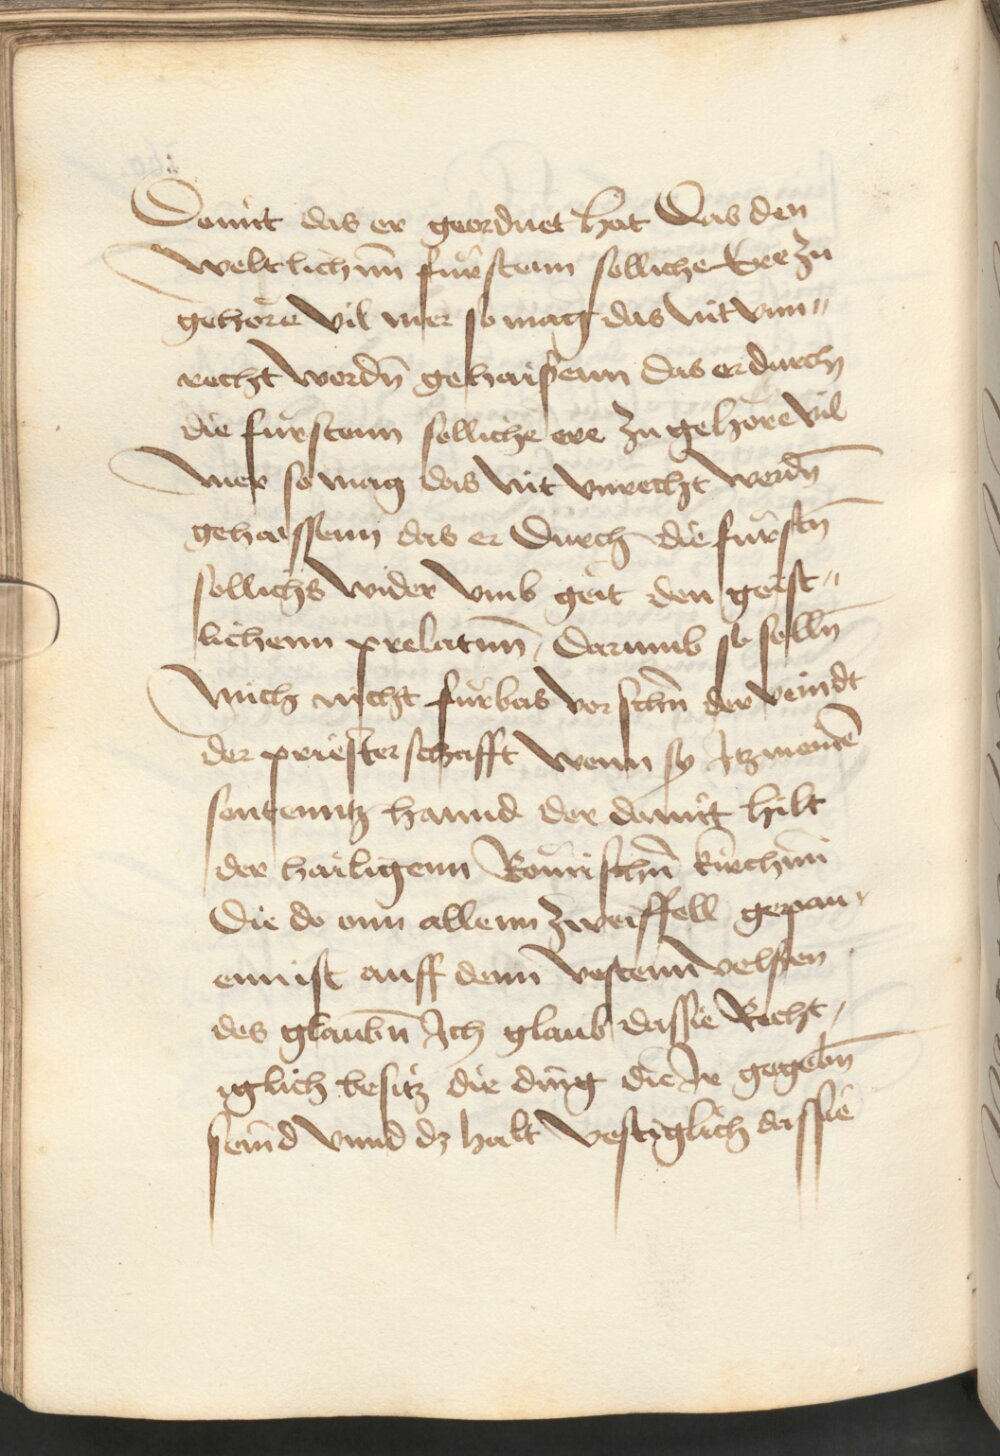 Domit das er geordnet hat Das den
weltlichnn fürstenn solliche Ere zu
gehöre vil mer so mag das nit vnn〃
recht werdn̄ gehaissenn das er durch
die fürstenn solliche ere zu gehöre vil
mer so mag das nit vnrecht werdn̄
gehaissenn das er durch die fürstn̄
sollichs wider vmb geit den geist〃
lichenn prelatnn̄ / Darumb so solln̄
mich nicht fürbas vor schn̄ der veindt
der priesterschafft wenn sy Itz meinē
sentenntz hannd der damit hilt
der hailigenn Römischn̄ kirchnn̄
Die do onn allenn zweiffell gepau〃
enn ist auff denn vestenn velsen
des glaubn̄ Ich glaub dassie Recht〃
iglich besitz die ding die Ir gegebn̄
seind vnnd dz halt vestiglich dassie